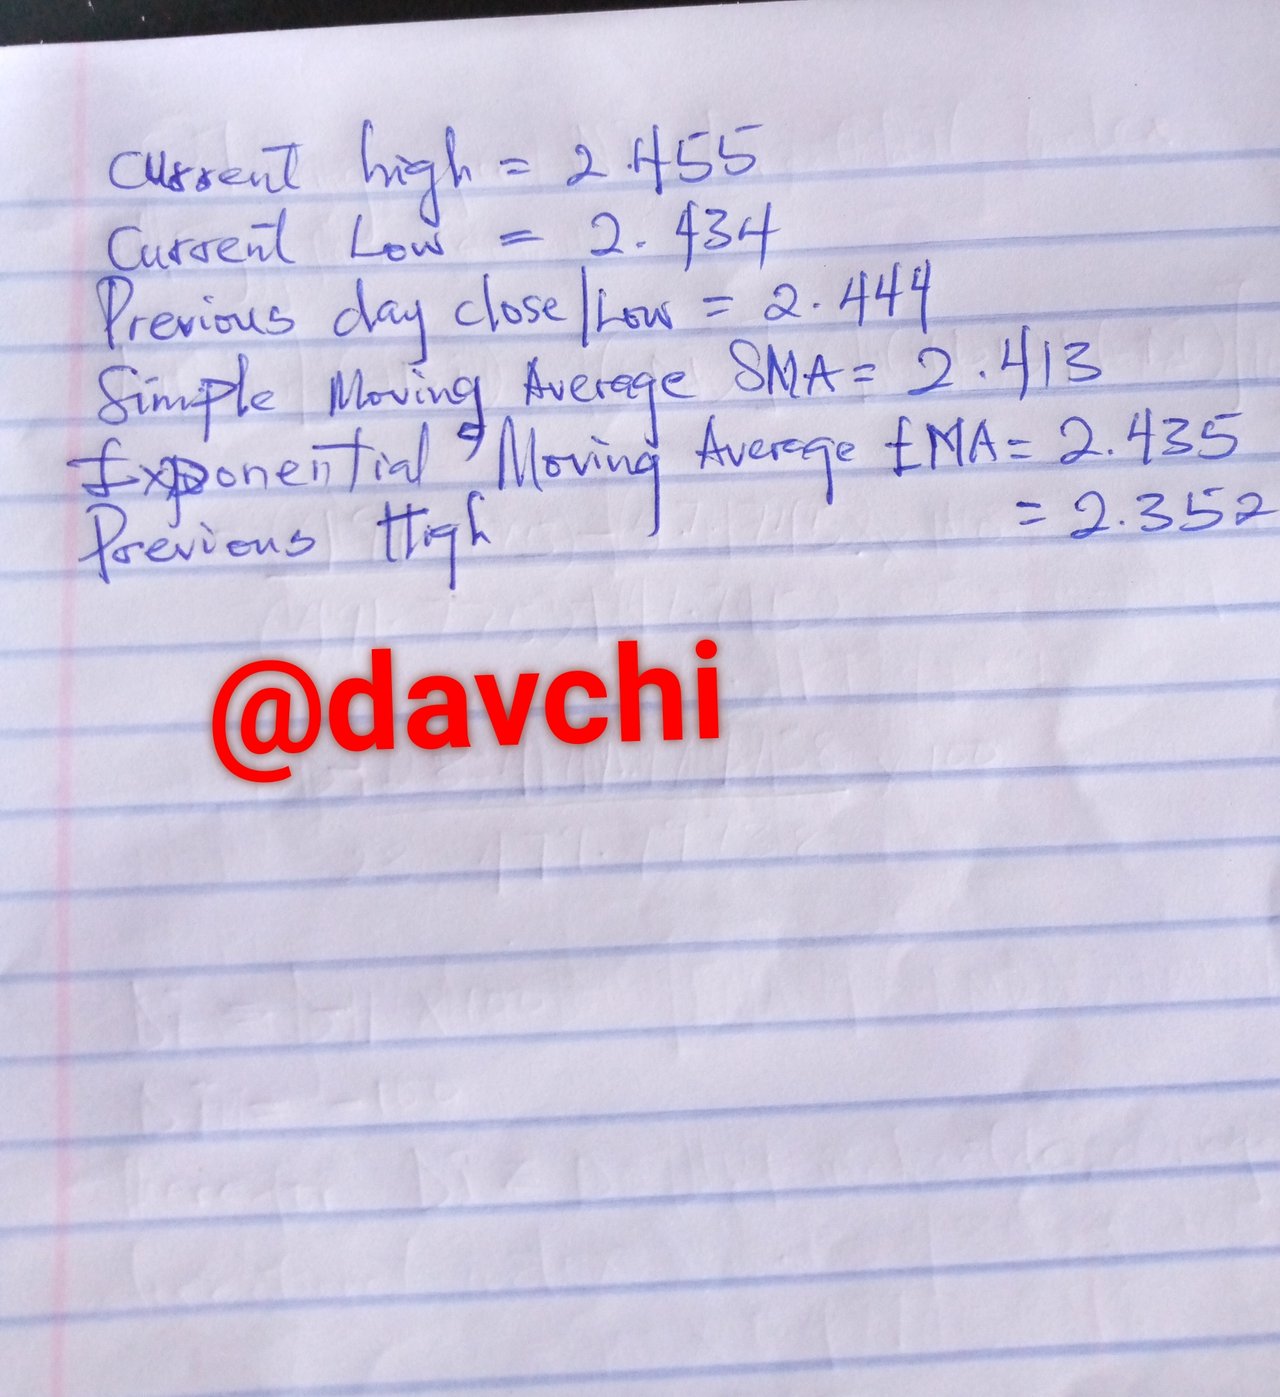 Current high = 2.455
Current Low = 2.434
Previous day close/Low = 2.444
Simple Moving Average SMA = 2.413
Exponential Moving Average EMA = 2.435
Previous High = 2.352
@davchi